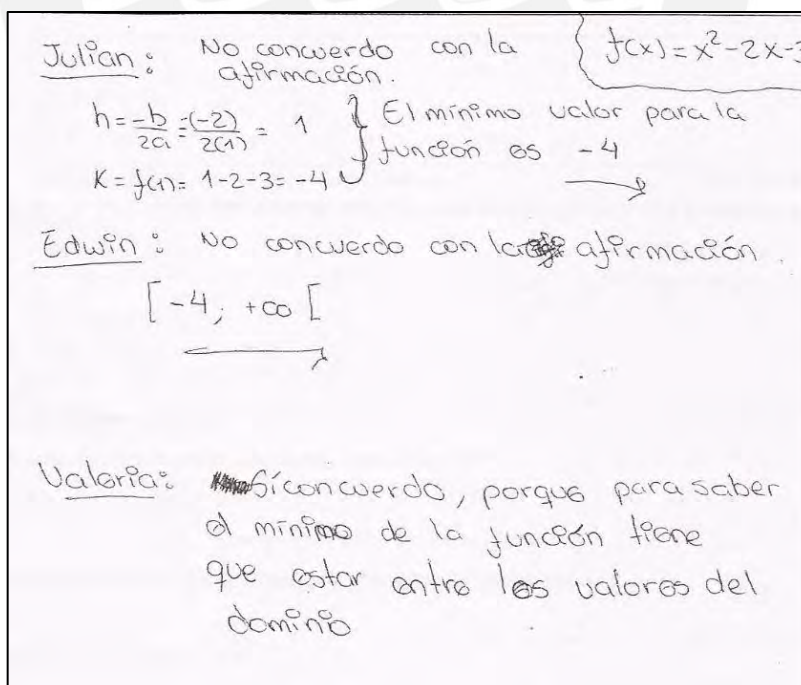 Julian: No concuerdo con la afirmación.
f(x) = x² - 2x - 3
h = -b/2a = (-2)/2(1) = 1
K = f(1) = 1 - 2 - 3 = -4
El mínimo valor para la función es -4
Edwin: No concuerdo con la afirmación.
[-4; +∞ [
Valeria: Sí concuerdo, porque para saber
el mínimo de la función tiene
que estar entre los valores del
dominio